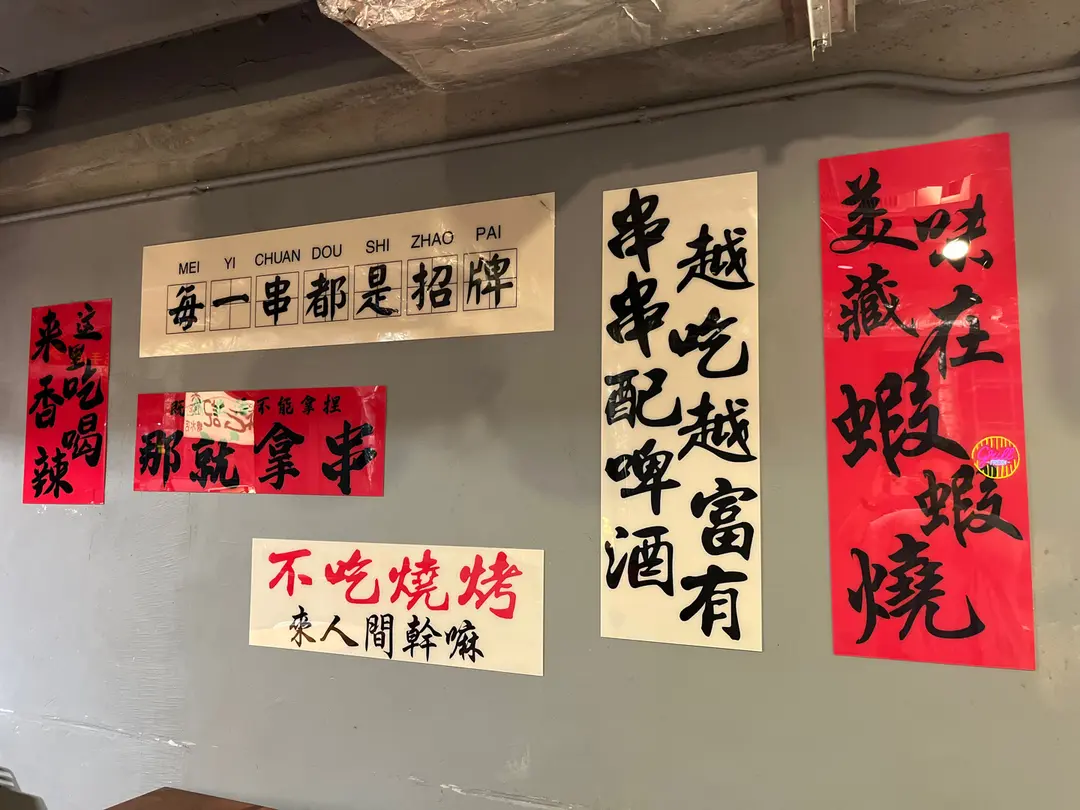 来这里吃香喝辣
MEI YI CHUAN DOU SHI ZHAO PAI
每一串都是招牌
不能拿捏
那就拿串
不吃燒烤
來人間幹嘛
串串配啤酒
越吃越富有
美味藏在蝦蝦燒